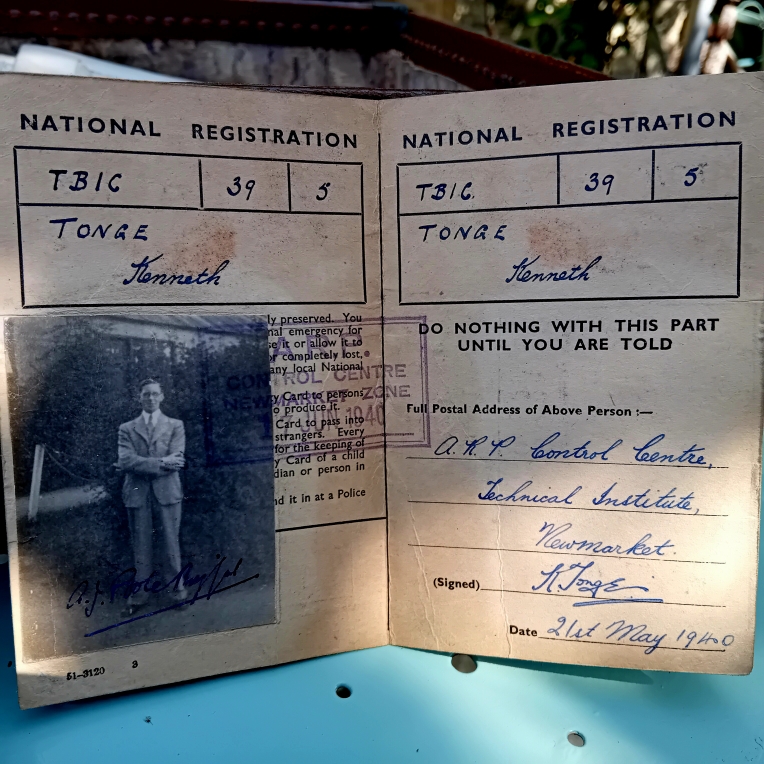 NATIONAL REGISTRATION
TBIC 39 5
TONGE
Kenneth
ly preserved. You
nal emergency for
se it or allow it to
or completely lost,
any local National
y Card to persons
o produce it.
Card to pass into
strangers. Every
for the keeping of
y Card of a child
dian or person in
nd it in at a Police
CONTROL CENTRE
NEWMARKET ZONE
JUN 1940
51-3120 3
NATIONAL REGISTRATION
TBIC. 39 5
TONGE
Kenneth
DO NOTHING WITH THIS PART
UNTIL YOU ARE TOLD
Full Postal Address of Above Person :—
A. R. P. Control Centre,
Technical Institute,
Newmarket.
(Signed) K. Tonge
Date 21st May 1940